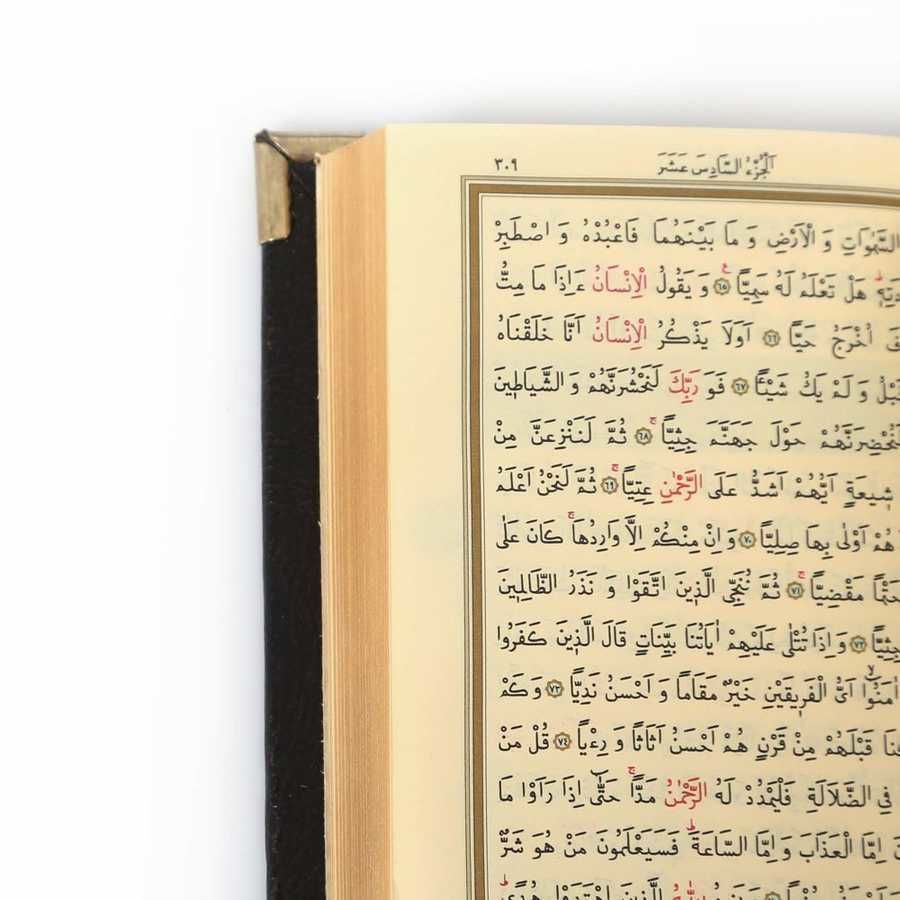 اَلْجُزْءُ السَّادِسَ عَشَرَ ٣٠٩
السَّمٰوَاتِ وَ الْاَرْضِ وَ مَا بَيْنَهُمَا فَاعْبُدْهُ وَ اصْطَبِرْ
هَلْ تَعْلَمُ لَهُ سَمِيًّا ﴿٦٥﴾ وَ يَقُولُ الْاِنْسَانُ ءَاِذَا مَا مِتُّ
اُخْرَجُ حَيًّا ﴿٦٦﴾ اَوَلَا يَذْكُرُ الْاِنْسَانُ اَنَّا خَلَقْنَاهُ
وَ لَمْ يَكُ شَيْئًا ﴿٦٧﴾ فَوَ رَبِّكَ لَنَحْشُرَنَّهُمْ وَ الشَّيَاطِينَ
لَنُحْضِرَنَّهُمْ حَوْلَ جَهَنَّمَ جِثِيًّا ﴿٦٨﴾ ثُمَّ لَنَنْزِعَنَّ مِنْ
شِيعَةٍ اَيُّهُمْ اَشَدُّ عَلَى الرَّحْمٰنِ عِتِيًّا ﴿٦٩﴾ ثُمَّ لَنَحْنُ اَعْلَمُ
هُمْ اَوْلٰى بِهَا صِلِيًّا ﴿٧٠﴾ وَ اِنْ مِنْكُمْ اِلَّا وَارِدُهَا كَانَ عَلٰى
حَتْمًا مَقْضِيًّا ﴿٧١﴾ ثُمَّ نُنَجِّى الَّذِينَ اتَّقَوْا وَ نَذَرُ الظَّالِمِينَ
جِثِيًّا ﴿٧٢﴾ وَ اِذَا تُتْلٰى عَلَيْهِمْ اٰيَاتُنَا بَيِّنَاتٍ قَالَ الَّذِينَ كَفَرُوا
اٰمَنُوا اَىُّ الْفَرِيقَيْنِ خَيْرٌ مَقَامًا وَ اَحْسَنُ نَدِيًّا ﴿٧٣﴾ وَ كَمْ
قَبْلَهُمْ مِنْ قَرْنٍ هُمْ اَحْسَنُ اَثَاثًا وَ رِءْيًا ﴿٧٤﴾ قُلْ مَنْ
فِى الضَّلَالَةِ فَلْيَمْدُدْ لَهُ الرَّحْمٰنُ مَدًّا حَتّٰى اِذَا رَاَوْا مَا
اِمَّا الْعَذَابَ وَ اِمَّا السَّاعَةَ فَسَيَعْلَمُونَ مَنْ هُوَ شَرٌّ
اللّٰهُ الَّذِينَ اهْتَدَوْا هُدًى